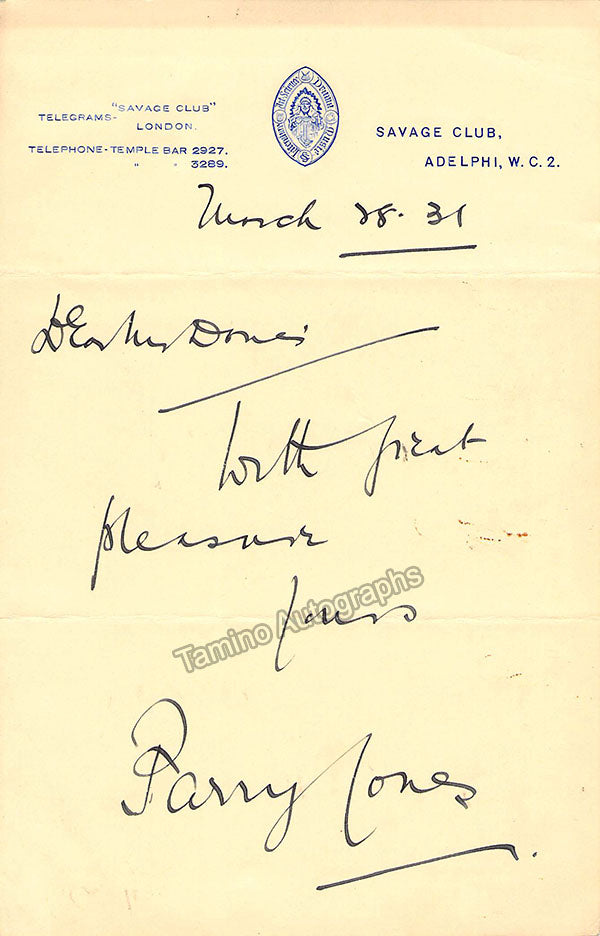 "SAVAGE CLUB"
TELEGRAMS-
LONDON.
TELEPHONE-TEMPLE BAR 2927.
" " 3289.
Literature Art Science Drama Music
SAVAGE CLUB,
ADELPHI, W.C.2.
March 28. 31
Dear Mr
With great
pleasure
Yours
Parry Jones
Tamino Autographs